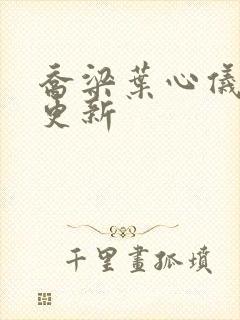 乔梁葉心儀
更新
千里畫孤墳